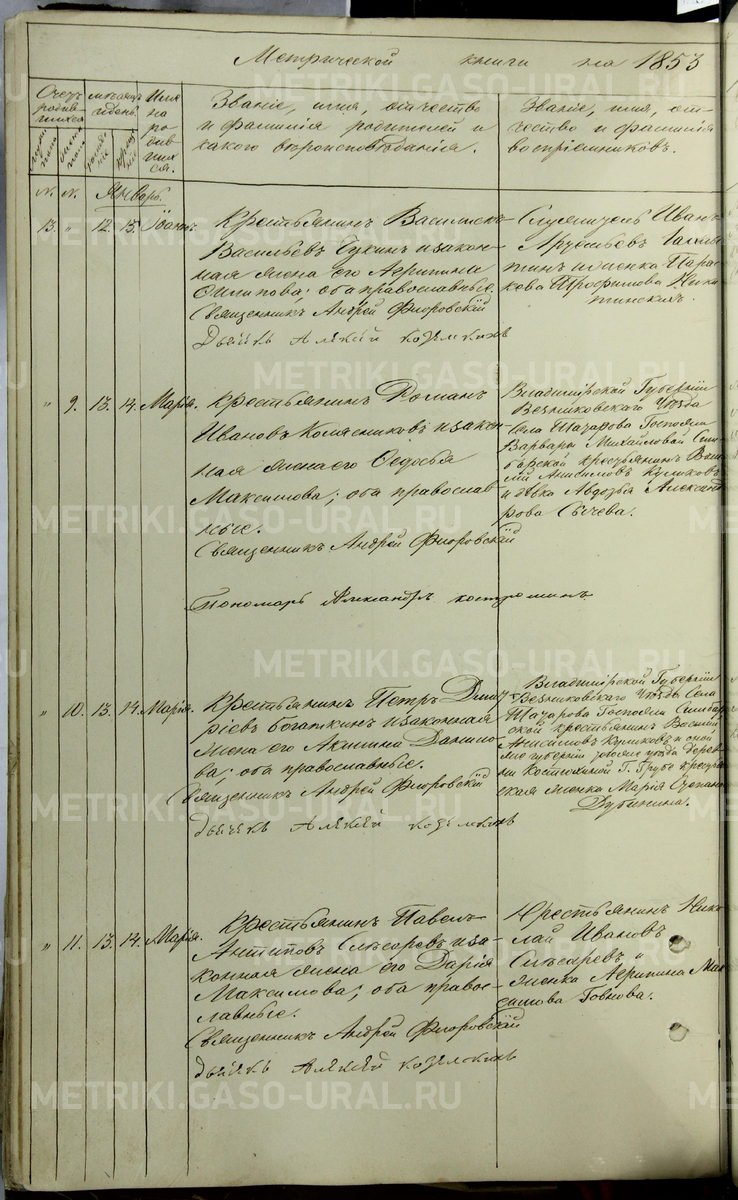 Метрической книги на 1853
Счетъ родив- шихся
мѣсяцъ и день
Имя на ро див ших ся.
Званіе, имя, отчество
и фамилія родителей и
какого вѣроисповѣданія.
Званіе, имя, от-
чество и фамилія
воспріемниковъ.
N. N. Январь.
13. " 12. 15. Іоаннъ
Крестьянинъ Василискъ
Васильевъ и закон-
ная жена его Агрипина
оба православные.
Священникъ Андрей Флоровскій
Дьячекъ Алексій
Служитель Иванъ
женка Парас-
кева Трофимова
" 9. 13. 14. Марія.
Крестьянинъ Романъ
Ивановъ Колясниковъ и закон
ная жена его Ѳедосья
Максимова; оба православ
ные.
Священникъ Андрей Флоровскій
Пономарь Александръ Костроминъ
Владимірской Губерніи
Вязниковскаго Уѣзда
села Госпожи
Варвары Михайловой Сим-
бирской крестьянинъ Васи-
лій Анисимовъ Куликовъ
и дѣвка Авдотья Александ
рова Сычева.
" 10. 13. 14. Марія.
Крестьянинъ Петръ Дмит
ріевъ Богаткинъ и законная
жена его Акилина Данило-
ва; оба православные.
Священникъ Андрей Флоровскій
дьячекъ Алексій
Владимірской Губерніи
Вязниковскаго Уѣзда Села
Госпожи Симбир
ской крестьянинъ Василій
Анисимовъ Куликовъ и оной
же губерніи уѣзда дерев
ни Г. Грубе крестьян
ская женка Марія Степан
Дубинина.
" 11. 13. 14. Марія.
Крестьянинъ Павелъ
Антиповъ Слѣсаревъ и за-
конная жена его Дарія
Максимова; оба правос-
лавные.
Священникъ Андрей Флоровскій
дьячекъ Алексій
Крестьянинъ Нико
лай Ивановъ
Слѣсаревъ и
женка Агрипина Мак
симова Говнова.
METRIKI.GASO-URAL.RU